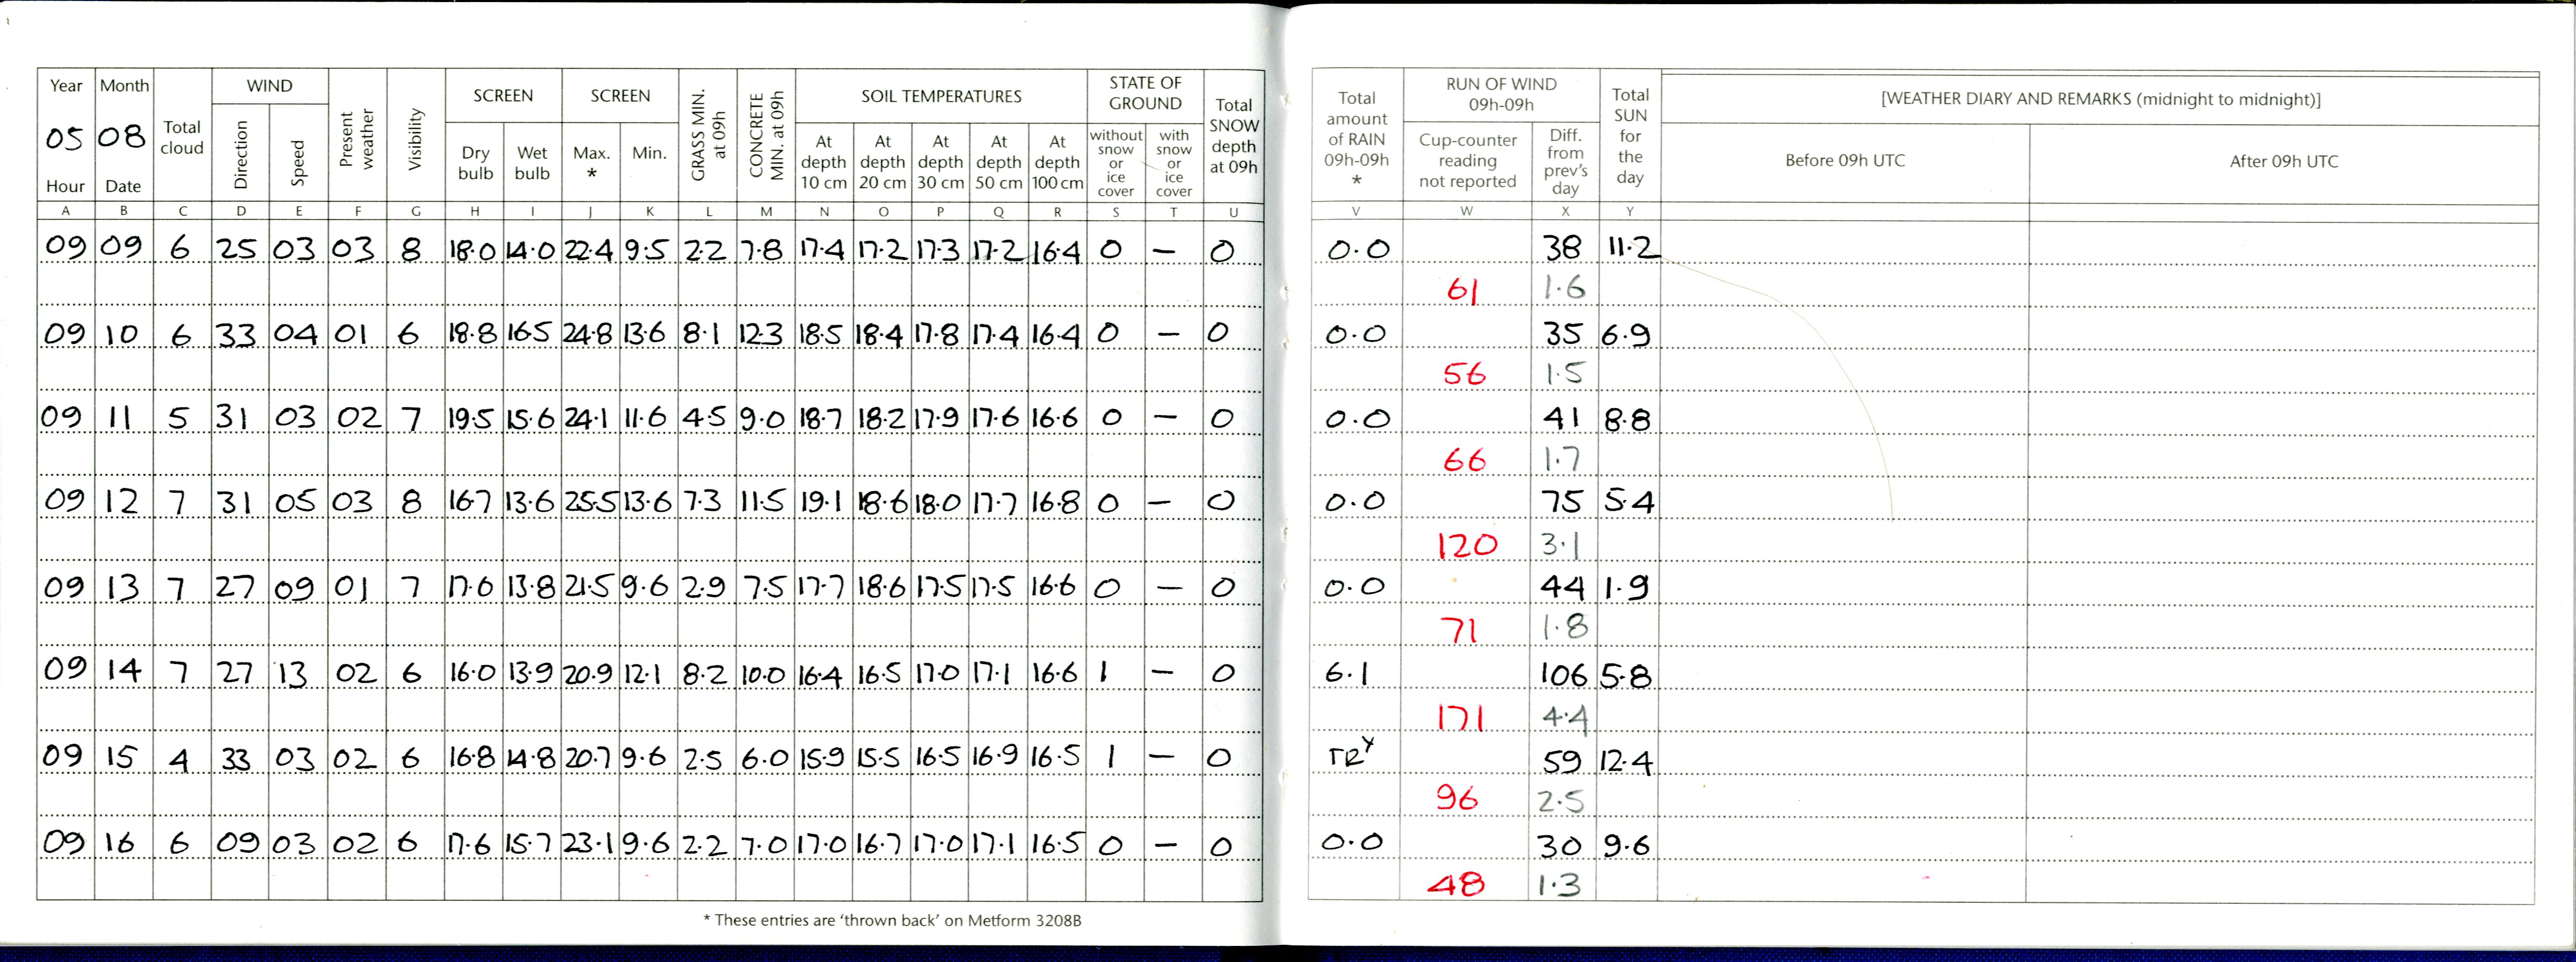 Year Month Total cloud WIND Present weather Visibility SCREEN SCREEN GRASS MIN. at 09h CONCRETE MIN. at 09h SOIL TEMPERATURES STATE OF GROUND Total SNOW depth at 09h Total amount of RAIN 09h-09h * RUN OF WIND 09h-09h Total SUN for the day [WEATHER DIARY AND REMARKS (midnight to midnight)]
05 08 Direction Speed Dry bulb Wet bulb Max. * Min. At depth 10 cm At depth 20 cm At depth 30 cm At depth 50 cm At depth 100 cm without snow or ice cover with snow or ice cover Cup-counter reading not reported Diff. from prev's day Before 09h UTC After 09h UTC
Hour Date
A B C D E F G H I J K L M N O P Q R S T U V W X Y
09 09 6 25 03 03 8 18.0 14.0 22.4 9.5 2.2 7.8 17.4 17.2 17.3 17.2 16.4 0 – 0 0.0 38 11.2
61 1.6
09 10 6 33 04 01 6 18.8 16.5 24.8 13.6 8.1 12.3 18.5 18.4 17.8 17.4 16.4 0 – 0 0.0 35 6.9
56 1.5
09 11 5 31 03 02 7 19.5 15.6 24.1 11.6 4.5 9.0 18.7 18.2 17.9 17.6 16.6 0 – 0 0.0 41 8.8
66 1.7
09 12 7 31 05 03 8 16.7 13.6 25.5 13.6 7.3 11.5 19.1 18.6 18.0 17.7 16.8 0 – 0 0.0 75 5.4
120 3.1
09 13 7 27 09 01 7 17.6 13.8 21.5 9.6 2.9 7.5 17.7 18.6 17.5 17.5 16.6 0 – 0 0.0 44 1.9
71 1.8
09 14 7 27 13 02 6 16.0 13.9 20.9 12.1 8.2 10.0 16.4 16.5 17.0 17.1 16.6 1 – 0 6.1 106 5.8
171 4.4
09 15 4 33 03 02 6 16.8 14.8 20.7 9.6 2.5 6.0 15.9 15.5 16.5 16.9 16.5 1 – 0 TRY 59 12.4
96 2.5
09 16 6 09 03 02 6 17.6 15.7 23.1 9.6 2.2 7.0 17.0 16.7 17.0 17.1 16.5 0 – 0 0.0 30 9.6
48 1.3
* These entries are 'thrown back' on Metform 3208B